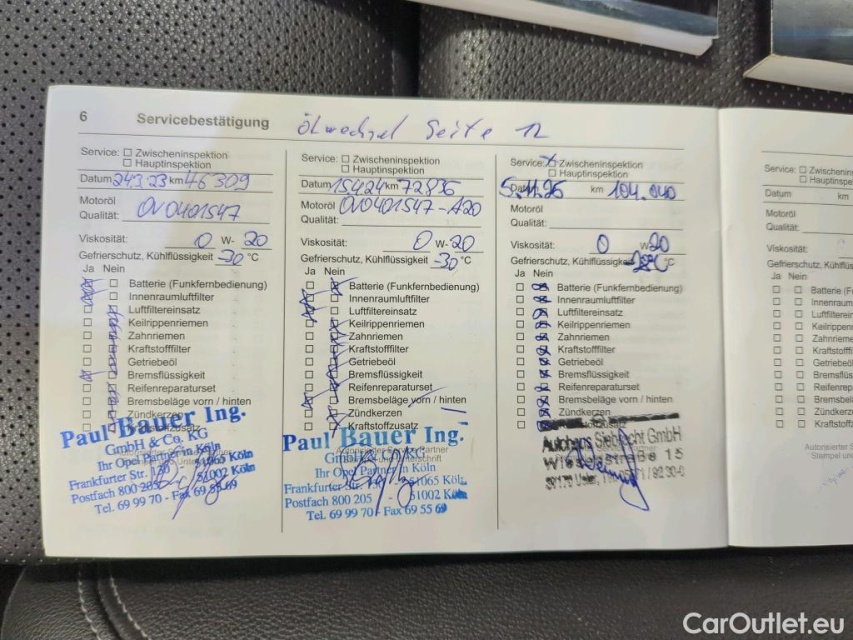 6 Servicebestätigung Ölwechsel Seite 12
Service: Zwischeninspektion
Hauptinspektion
Datum 24.3.23 km 46309
Motoröl
Qualität: OV0401547
Viskosität: 0 W- 20
Gefrierschutz, Kühlflüssigkeit -30 °C
Ja Nein
Batterie (Funkfernbedienung)
Innenraumluftfilter
Luftfiltereinsatz
Keilrippenriemen
Zahnriemen
Kraftstofffilter
Getriebeöl
Bremsflüssigkeit
Reifenreparaturset
Bremsbeläge vorn / hinten
Zündkerzen
Paul Bauer Ing.
GmbH & Co. KG
Ihr Opel Partner in Köln
Frankfurter Str. 130 51065 Köln
Postfach 800 205 51002 Köln
Tel. 69 99 70 - Fax 69 55 69
Service: Zwischeninspektion
Hauptinspektion
Datum 15424 km 72836
Motoröl OV0401547-A20
Qualität:
Viskosität: 0 W-20
Gefrierschutz, Kühlflüssigkeit -30 °C
Ja Nein
Batterie (Funkfernbedienung)
Innenraumluftfilter
Luftfiltereinsatz
Keilrippenriemen
Zahnriemen
Kraftstofffilter
Getriebeöl
Bremsflüssigkeit
Reifenreparaturset
Bremsbeläge vorn / hinten
Zündkerzen
Kraftstoffzusatz
Paul Bauer Ing.
Ihr Opel Partner in Köln
Frankfurter Str. 51065 Köln
Postfach 800 205 51002 Köln
Tel. 69 99 70 - Fax 69 55 69
Service: Zwischeninspektion
Hauptinspektion
Datum km 104.040
Motoröl
Qualität:
Viskosität: 0 W20
Gefrierschutz, Kühlflüssigkeit °C
Ja Nein
Batterie (Funkfernbedienung)
Innenraumluftfilter
Luftfiltereinsatz
Keilrippenriemen
Zahnriemen
Kraftstofffilter
Getriebeöl
Bremsflüssigkeit
Reifenreparaturset
Bremsbeläge vorn / hinten
Zündkerzen
Autohaus GmbH
15
Service: Zwischenin
Hauptinspe
Datum km
Motoröl
Qualität:
Viskosität:
Gefrierschutz, Kühlflüssig
Ja Nein
Batterie (F
Innenraum
Luftfilterein
Keilrippen
Zahnrieme
Kraftstofff
Getriebeöl
Bremsflüss
Reifenrepa
Bremsbelä
Zündkerze
Kraftstoffz
Autorisierter S
Stempel un
CarOutlet.eu